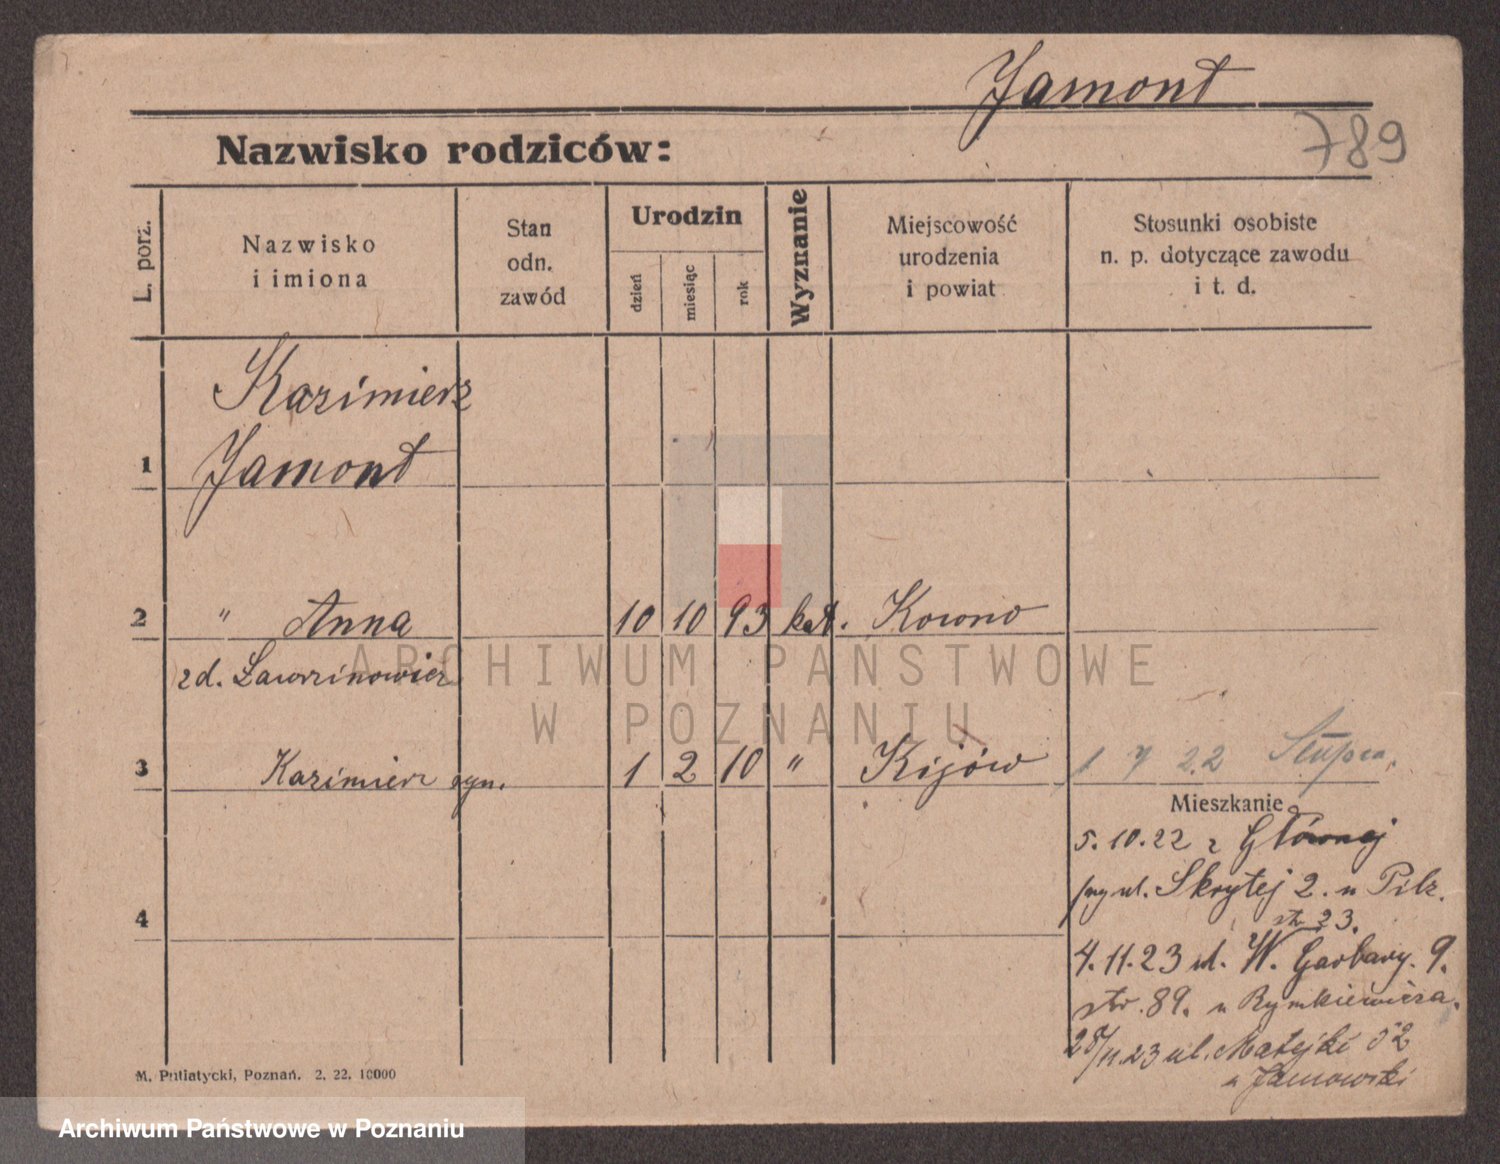 Jamont
789
Nazwisko rodziców:
L. porz.
Nazwisko
i imiona
Stan
odn.
zawód
Urodzin
dzień
miesiąc
rok
Wyznanie
Miejscowość
urodzenia
i powiat
Stosunki osobiste
n. p. dotyczące zawodu
i t. d.
Kazimierz
1 Jamont
2 " Anna 10 10 93 kat. Kowno
zd. Ławrinowicz
3 Kazimierz syn. 1 2 10 " Kijów 1 7 22 Słupca.
Mieszkanie
5.10.22 z Głównej
przy ul. Skrytej 2. u Pilz.
str 23.
4
4.11.23 ul. W. Garbary. 9.
str. 89. u Rymkiewicza.
28/11.23 ul. Matejki 52
u Janowski
M. Putiatycki, Poznań. 2. 22. 10000
ARCHIWUM PAŃSTWOWE
W POZNANIU
Archiwum Państwowe w Poznaniu